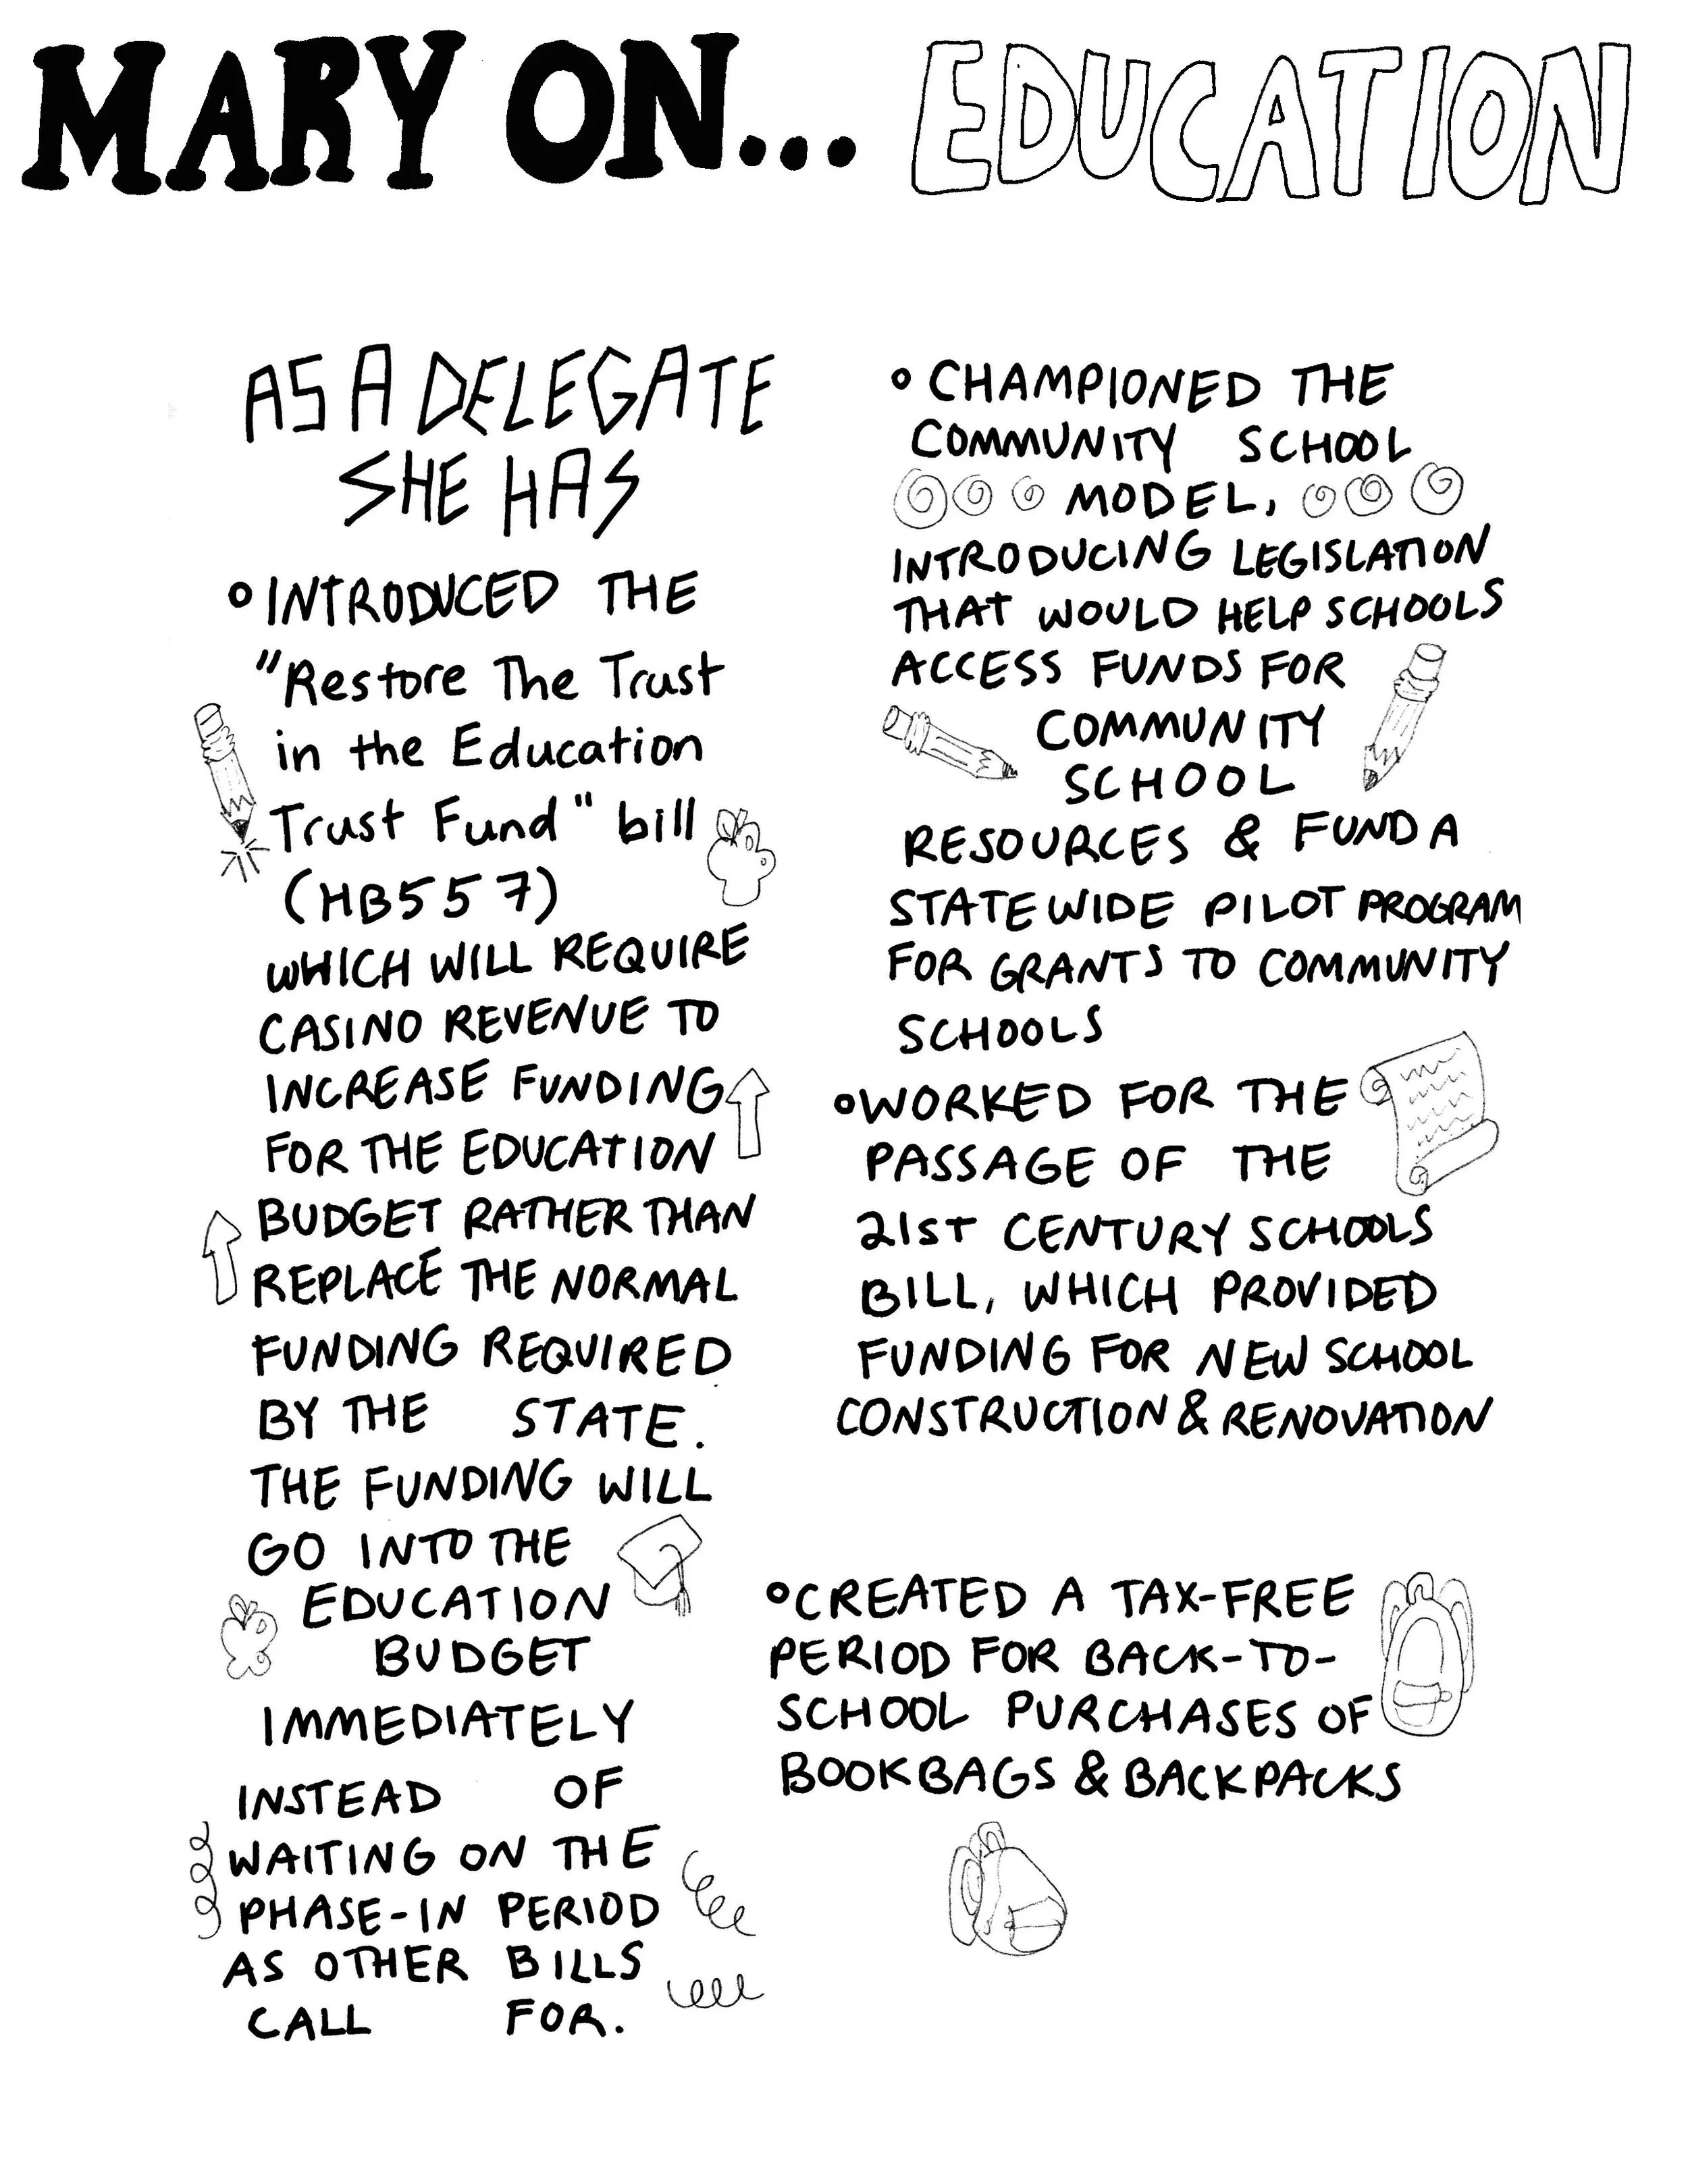 MARY ON... EDUCATION
AS A DELEGATE
SHE HAS
° INTRODUCED THE
"Restore The Trust
in the Education
Trust Fund" bill
(HB557)
WHICH WILL REQUIRE
CASINO REVENUE TO
INCREASE FUNDING
FOR THE EDUCATION
BUDGET RATHER THAN
REPLACE THE NORMAL
FUNDING REQUIRED
BY THE STATE.
THE FUNDING WILL
GO INTO THE
EDUCATION
BUDGET
IMMEDIATELY
INSTEAD OF
WAITING ON THE
PHASE-IN PERIOD
AS OTHER BILLS
CALL FOR.
° CHAMPIONED THE
COMMUNITY SCHOOL
MODEL,
INTRODUCING LEGISLATION
THAT WOULD HELP SCHOOLS
ACCESS FUNDS FOR
COMMUNITY
SCHOOL
RESOURCES & FUND A
STATEWIDE PILOT PROGRAM
FOR GRANTS TO COMMUNITY
SCHOOLS
° WORKED FOR THE
PASSAGE OF THE
21ST CENTURY SCHOOLS
BILL, WHICH PROVIDED
FUNDING FOR NEW SCHOOL
CONSTRUCTION & RENOVATION
° CREATED A TAX-FREE
PERIOD FOR BACK-TO-
SCHOOL PURCHASES OF
BOOKBAGS & BACKPACKS